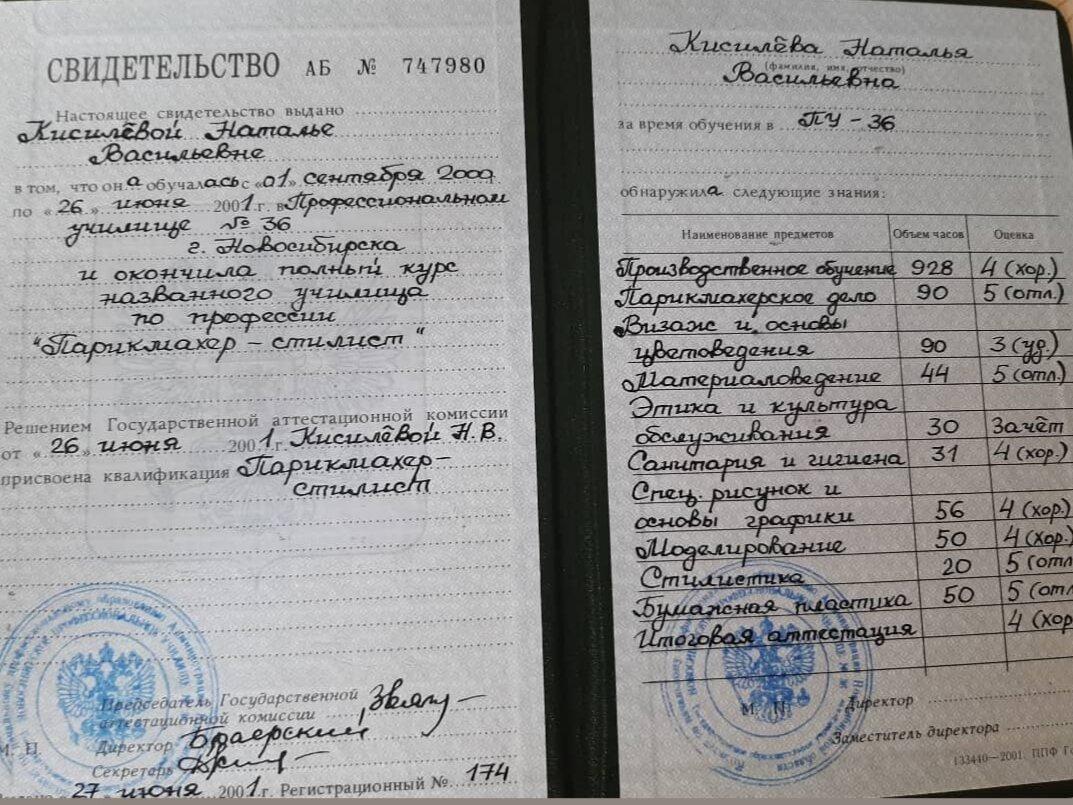 СВИДЕТЕЛЬСТВО АБ № 747980
Настоящее свидетельство выдано
Кисилёвой Наталье
Васильевне
в том, что она обучалась с «01» сентября 2000
по «26» июня 2001 г. в Профессиональном
училище № 36
г. Новосибирска
и окончила полный курс
названного училища
по профессии
"Парикмахер – стилист"
Решением Государственной аттестационной комиссии
от «26» июня 2001 г. Кисилёвой Н.В.
присвоена квалификация Парикмахер–
стилист
Председатель Государственной
аттестационной комиссии
М. П. Директор
Секретарь
27 июня 2001 г. Регистрационный № 174
Кисилёва Наталья
(фамилия, имя, отчество)
Васильевна
за время обучения в ПУ – 36
обнаружила следующие знания:
Наименование предметов Объем часов Оценка
Производственное обучение 928 4 (хор.)
Парикмахерское дело 90 5 (отл.)
Визаж и основы
цветоведения 90 3 (уд.)
Материаловедение 44 5 (отл.)
Этика и культура
обслуживания 30 Зачёт
Санитария и гигиена 31 4 (хор.)
Спец. рисунок и
основы графики 56 4 (хор.)
Моделирование 50 4 (хор.)
Стилистика 20 5 (отл
Бумажная пластика 50 5 (отл
Итоговая аттестация 4 (хор
М. П. Директор
Заместитель директора
133440–2001. ППФ Г